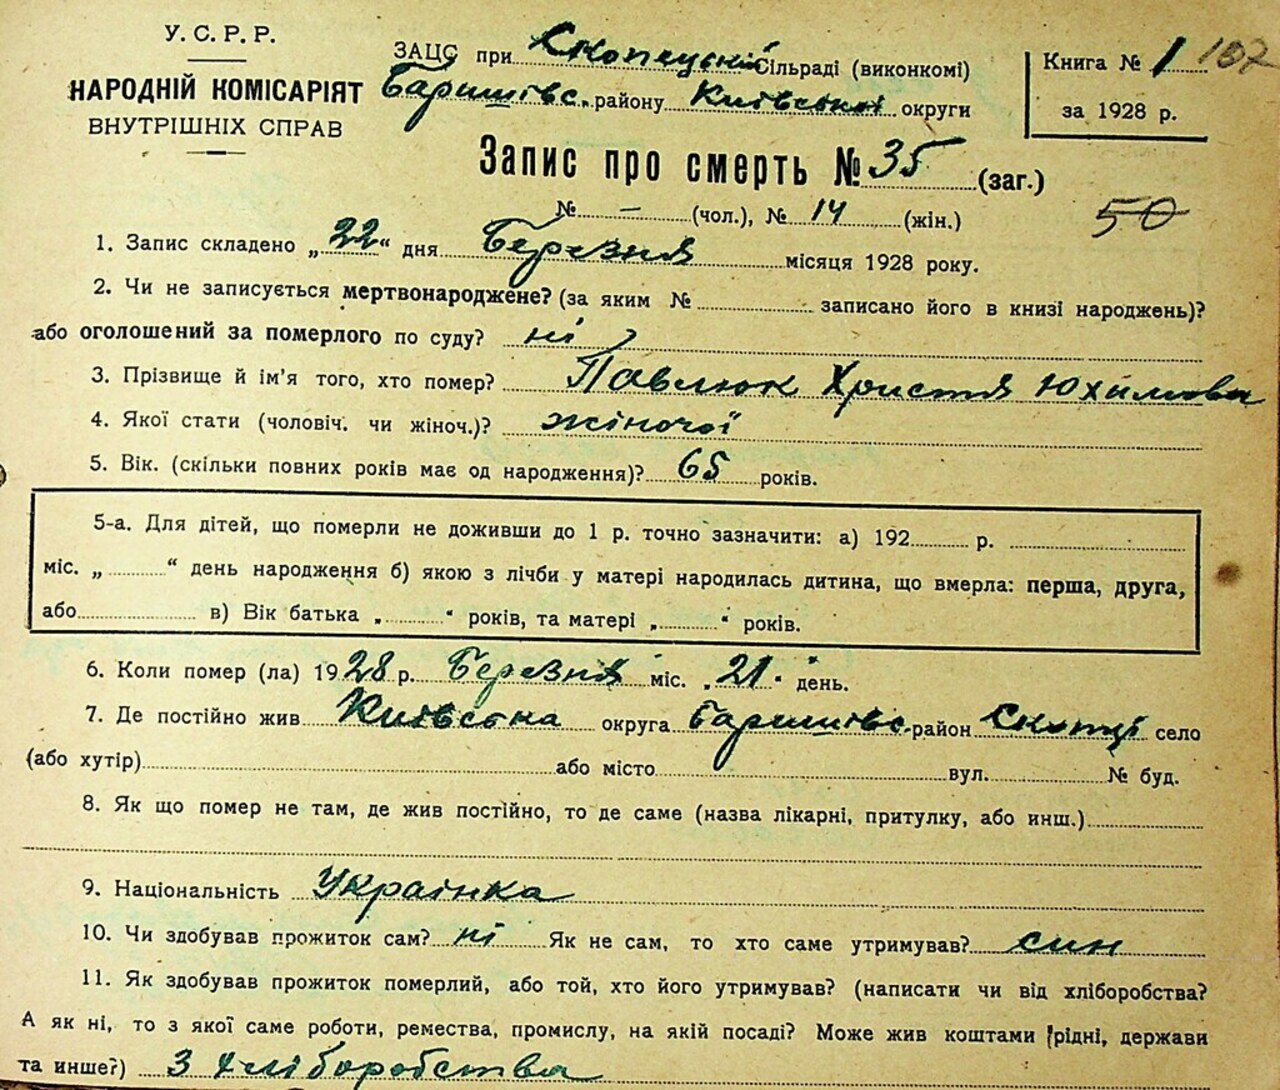 У. С. Р. Р.
НАРОДНІЙ КОМІСАРІЯТ
ВНУТРІШНІХ СПРАВ
ЗАЦС при Скопецькій Сільраді (виконкомі)
Баришівс. району Київської округи
Книга № 1 107
за 1928 р.
Запис про смерть № 35 (заг.)
№ – (чол.), № 14 (жін.)
50
1. Запис складено „22“ дня Березня місяця 1928 року.
2. Чи не записується мертвонароджене? (за яким № записано його в книзі народжень)?
або оголошений за померлого по суду? ні
3. Прізвище й ім'я того, хто помер? Павлюк Христя Юхимова
4. Якої стати (чоловіч. чи жіноч.)? жіночої
5. Вік. (скільки повних років має од народження)? 65 років.
5-а. Для дітей, що померли не доживши до 1 р. точно зазначити: а) 192 р.
міс. „ “ день народження б) якою з лічби у матері народилась дитина, що вмерла: перша, друга,
або в) Вік батька „ “ років, та матері „ “ років.
6. Коли помер (ла) 1928 р. Березня міс. „21“ день.
7. Де постійно жив Київська округа Баришівс. район Скопці село
(або хутір) або місто вул. № буд.
8. Як що помер не там, де жив постійно, то де саме (назва лікарні, притулку, або инш.)
9. Національність Українка
10. Чи здобував прожиток сам? ні Як не сам, то хто саме утримував? син
11. Як здобував прожиток померлий, або той, хто його утримував? (написати чи від хліборобства?
А як ні, то з якої саме роботи, ремества, промислу, на якій посаді? Може жив коштами (рідні, держави
та инше?) З хліборобства